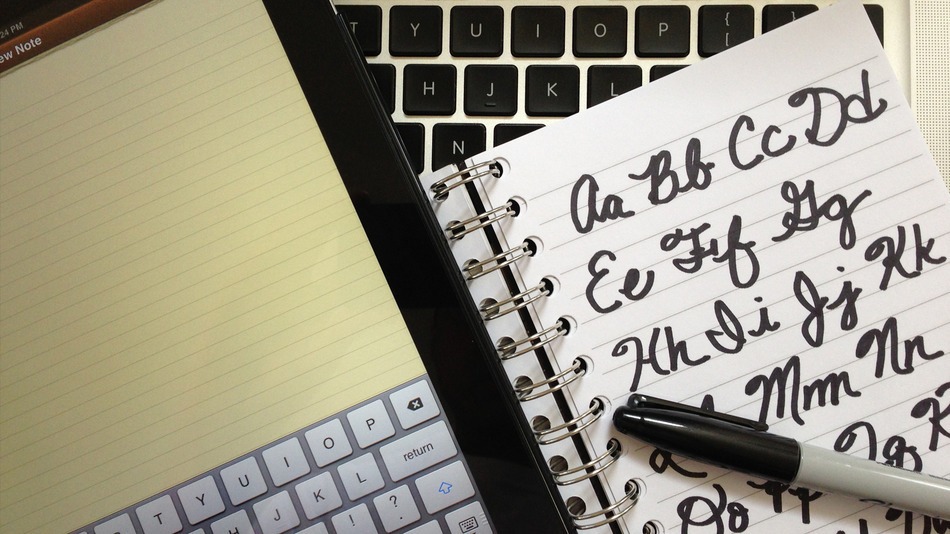 24 PM
ew Note
T Y U I O P { [
H J K L
N
Aa Bb Cc Dd
Ee Ff Gg
Hh Ii Jj Kk
Mm Nn
Oo Pp
T Y U I O P
H J K L return
! ?